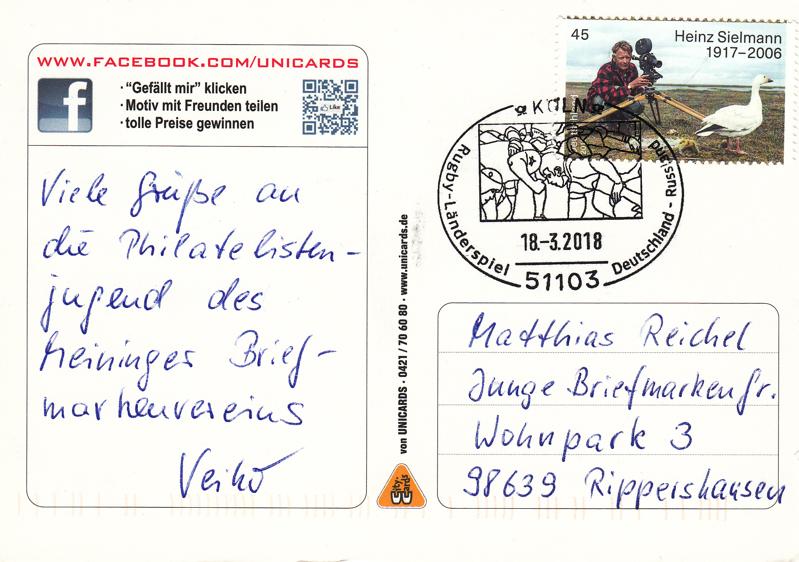 WWW.FACEBOOK.COM/UNICARDS
f
· "Gefällt mir" klicken
· Motiv mit Freunden teilen
· tolle Preise gewinnen
Like
Viele Grüße an
die Philatelisten-
jugend des
Meininger Brief-
markenvereins
Veiko
von UNICARDS · 0421 / 70 60 80 · www.unicards.de
City-
Cards
45
Heinz Sielmann
1917–2006
KÖLN
Rugby-Länderspiel Deutschland - Russland
18.-3.2018
51103
Matthias Reichel
Junge Briefmarkenfr.
Wohnpark 3
98639 Rippershausen